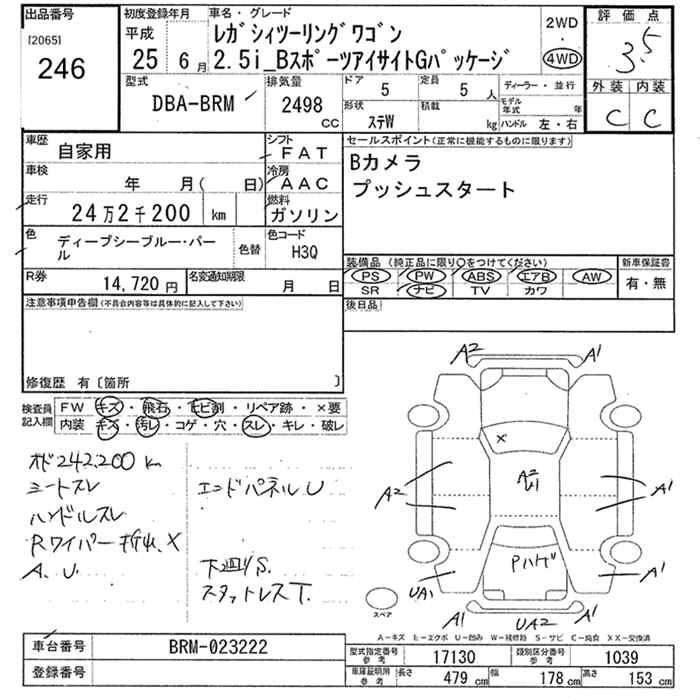 出品番号
[2065]
246
初度登録年月
平成
25年 6月
車名・グレード
レガシィツーリングワゴン
2.5i_Bスポーツアイサイトgパッケージ
2WD
・
4WD
評価点
3.5
外装 内装
C C
型式
DBA-BRM
排気量
2498
cc
ドア 5
定員 5 人
形状 ステW
積載 kg
ディーラー・並行
モデル年式 年
ハンドル 左・右
車歴
自家用
シフト
FAT
車検
年 月( 日)
冷房
AAC
走行
24万2千200 km
燃料
ガソリン
色
ディープシーブルー・パール
色替
色コード
H3Q
R券
14,720円
名変通知期限
月 日
セールスポイント(正常に機能するものに限ります)
Bカメラ
プッシュスタート
装備品(純正品に限り○をつけてください)
PS PW ABS エアB AW
SR ナビ TV カワ
新車保証書
有・無
後日品
注意事項申告欄(不具合内容等は具体的に記入して下さい)
修復歴 有〔箇所 〕
検査員記入欄
FW キズ・飛石・ヒビ割・リペア跡・×要
内装 キズ・汚レ・コゲ・穴・スレ・キレ・破レ
オド242,200km
シートスレ
ハンドルスレ
Rワイパー折れ、X
A、U
エンドパネルU
下廻りS.
スタットレスT.
A2 A1
X
A2
U1
A2 A1
Pハゲ
UA1 A1
A1 UA2 A1
スペア
A-キズ E-エクボ U-凹み W-補修跡 S-サビ C-腐食 XX-交換済
車台番号
BRM-023222
登録番号
型式指定番号 参考
17130
類別区分番号 参考
1039
車庫証明用 参考
長さ 479 cm 幅 178 cm 高さ 153 cm